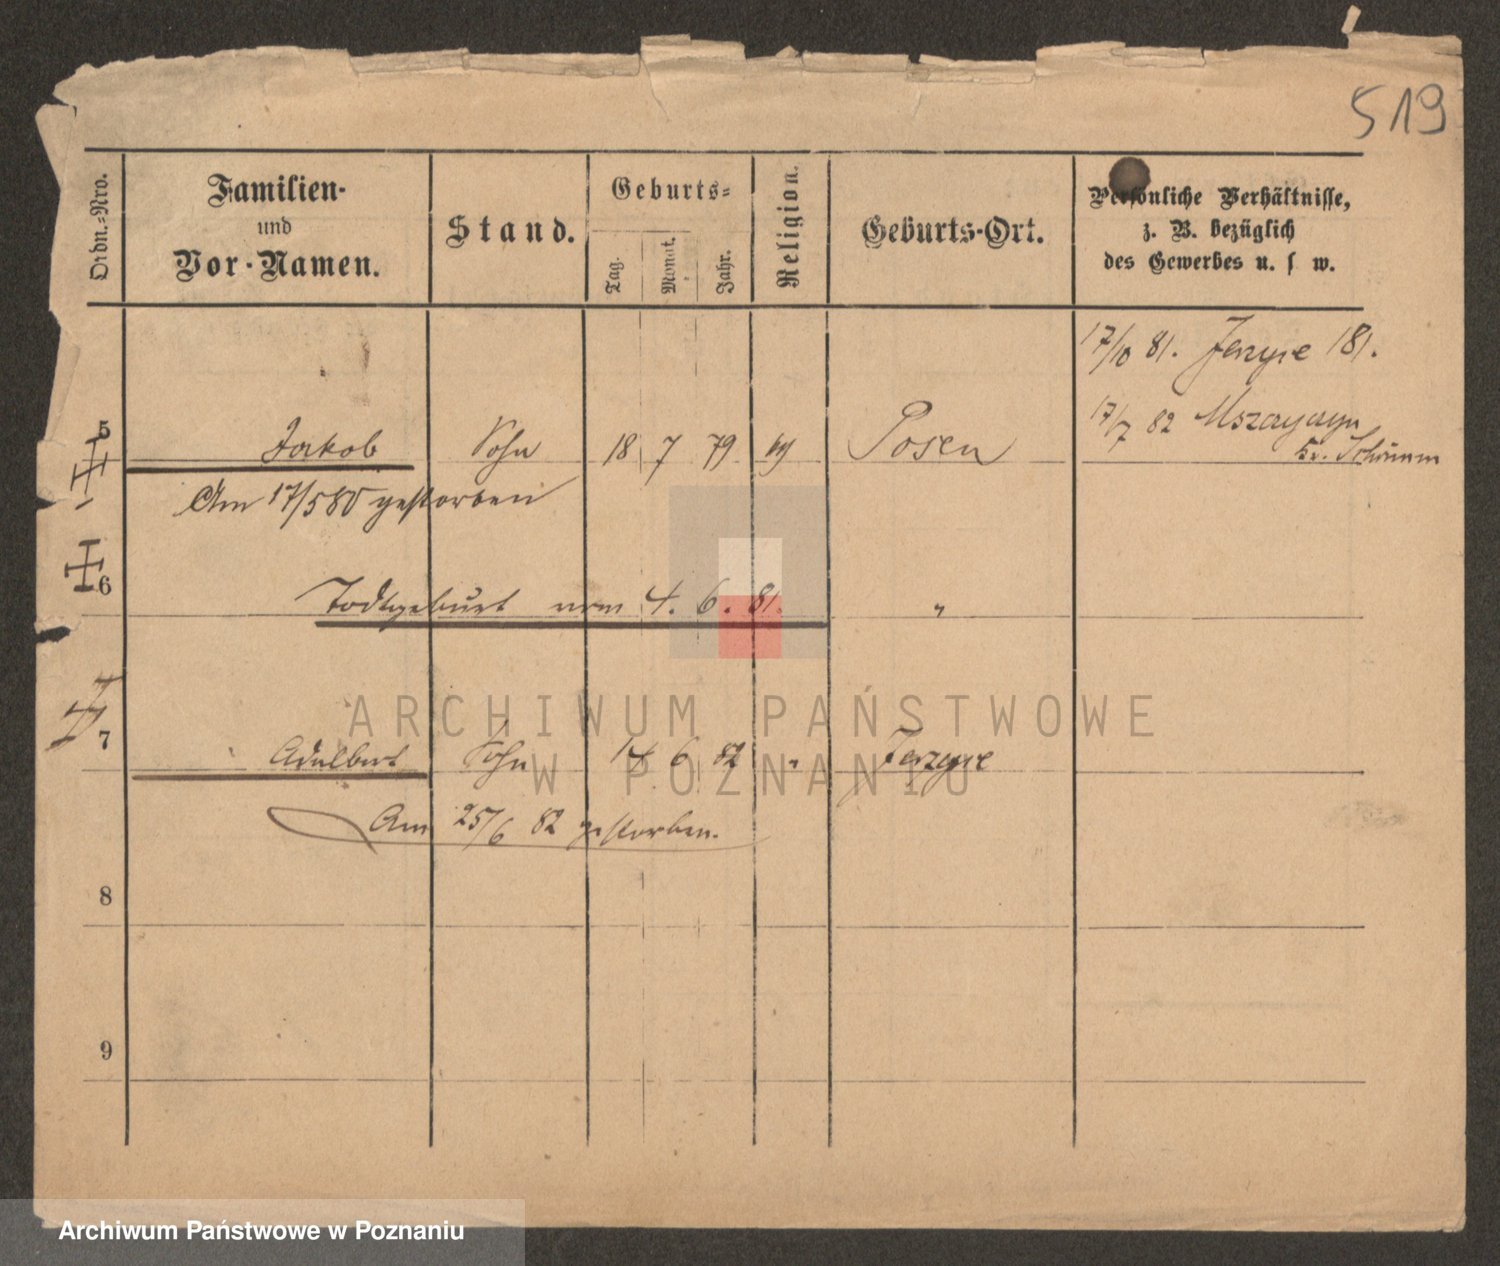 519
Ordn.-Nro.
Familien-
und
Vor-Namen.
Stand.
Geburts-
Tag.
Monat.
Jahr.
Religion.
Geburts-Ort.
Persönliche Verhältnisse,
z. B. bezüglich
des Gewerbes u. s w.
17/10 81. Jerzyce 181.
17/7 82
Kr. Schrimm
5 Jakob Sohn 18 7 79 Posen
Am 17/5 80 gestorben
6 Todtgeburt vom 4. 6. 81. "
7 Adalbert Sohn 14 6 82 " Jerzyce
Am 25/6 82 gestorben.
8
9
ARCHIWUM PAŃSTWOWE
W POZNANIU
Archiwum Państwowe w Poznaniu